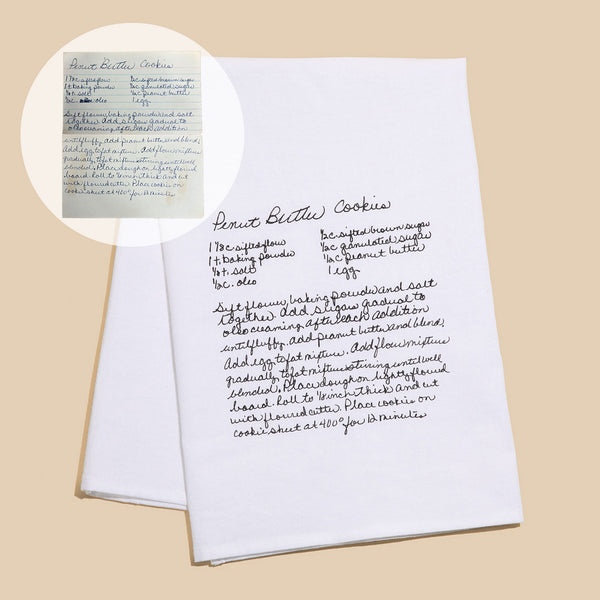 Penut Butter Cookies
1 ½c sifted flow ½c sifted brown sugar
1 t. baking powder ½c granulated sugar
½ t. salt ½c peanut butter
½c. oleo 1 egg
Sift flower, baking powder and salt
together. Add sugar gradual to
oleo creaming after each addition
until fluffy. add peanut butter and blend.
Add egg to fat mixture. Add flow mixture
gradually to fat mixture stirring until well
blended. Place dough on lightly flowed
board. Roll to ⅛ inch thick and cut
with floured cutter. Place cookies on
cookie sheet at 400° for 12 minutes
Penut Butter Cookies
1 ½c sifted flow ½c sifted brown sugar
1 t. baking powder ½c granulated sugar
½ t. salt ½c peanut butter
½c. oleo 1 egg
Sift flower, baking powder and salt
together. Add sugar gradual to
oleo creaming after each addition
until fluffy. add peanut butter and blend.
Add egg to fat mixture. Add flow mixture
gradually to fat mixture stirring until well
blended. Place dough on lightly flowed
board. Roll to ⅛ inch thick and cut
with floured cutter. Place cookies on
cookie sheet at 400° for 12 minutes